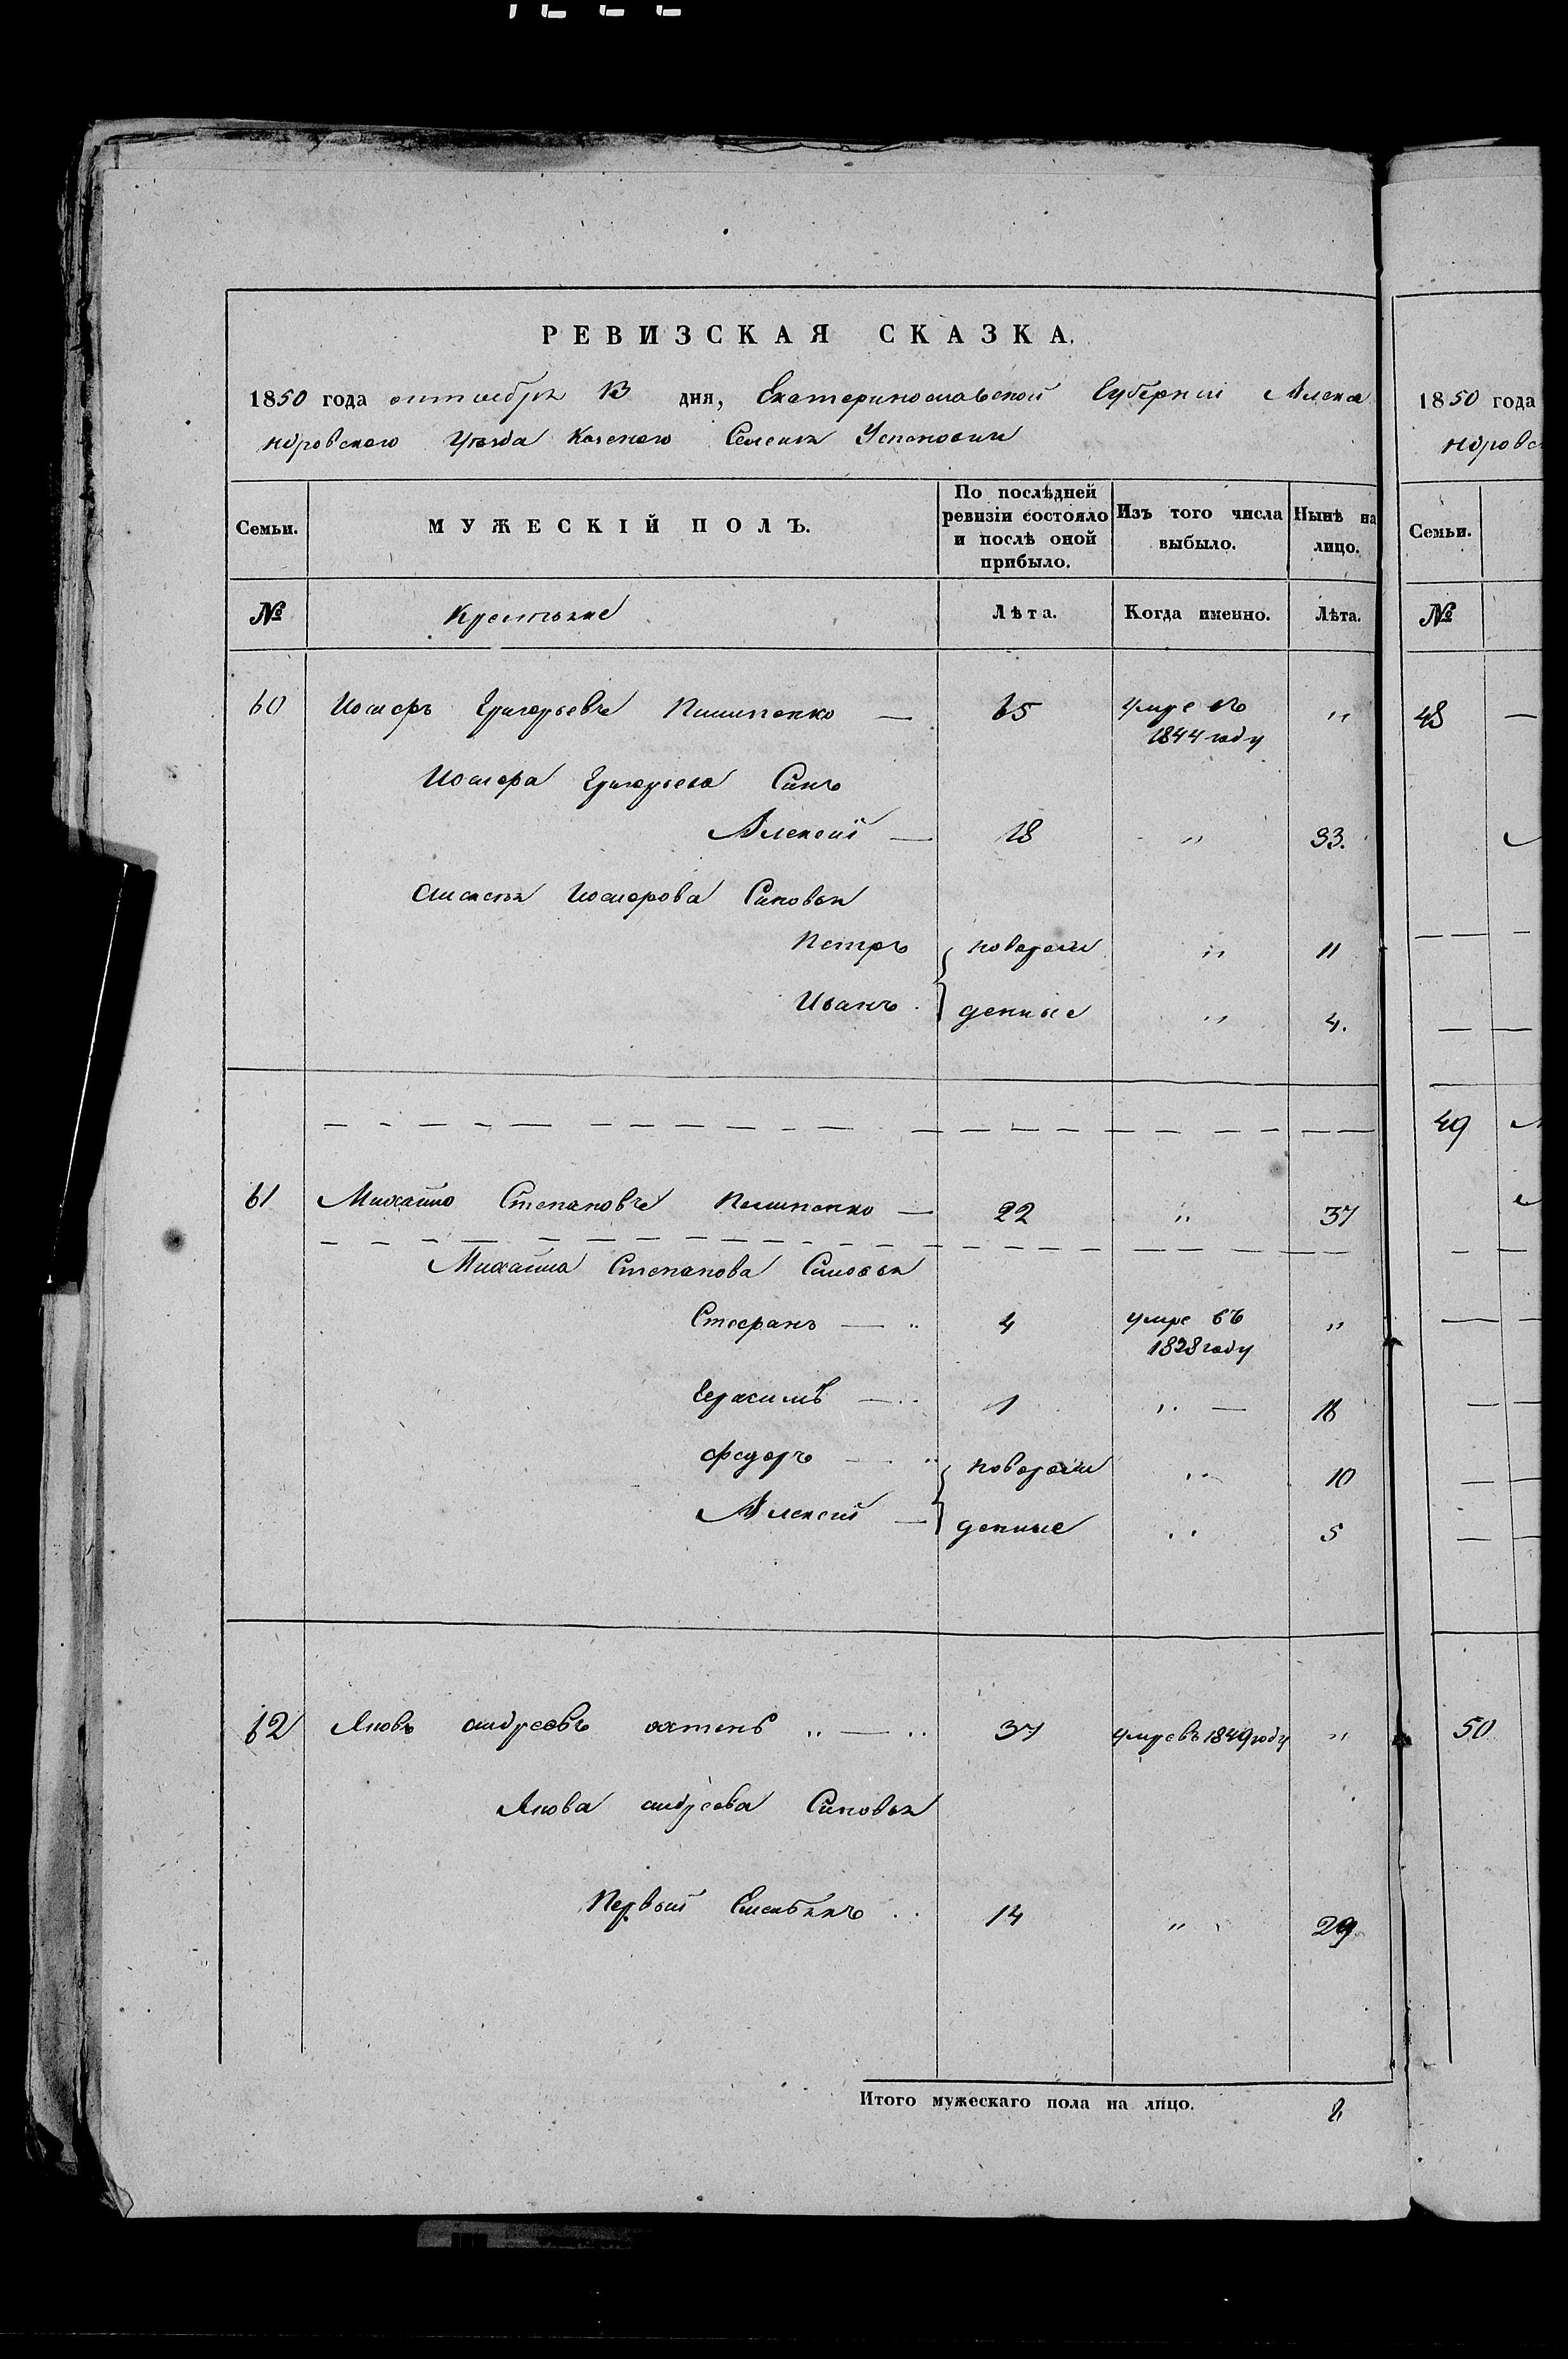 РЕВИЗСКАЯ СКАЗКА.
1850 года октября 13 дня, Екатеринославской Губернии Алекса
ндровского Уезда Казеного Селения Успеновки
Семьи. МУЖЕСКІЙ ПОЛЪ. По послѣдней ревизіи состояло и послѣ оной прибыло. Изъ того числа выбыло. Нынѣ на лицо.
№ Крестьяне Лѣта. Когда именно. Лѣта.
60 Иосифъ Григорьевъ Пилипенко — 65 умре въ 1844 году "
Иосифа Григорьева Синъ
Алексий — 18 " 33.
Алексея Иосифова Синовья
Петръ новорож " 11
Иванъ денные " 4.
61 Михайло Степановъ Пилипенко — 22 " 37
Михайла Степанова Синовья
Стефанъ — 4 умре въ 1838 году "
Герасимъ — 1 " — 16
Федоръ — новорож " 10
Алексий — денные " 5
62 Яковъ андреевъ " — " 37 умре въ 1849 году "
Якова андреева Синовья
Первый Емельянъ 14 " 29
Итого мужескаго пола на лицо. 8
1850 года
ндровс
Семьи.
№
48
49
50